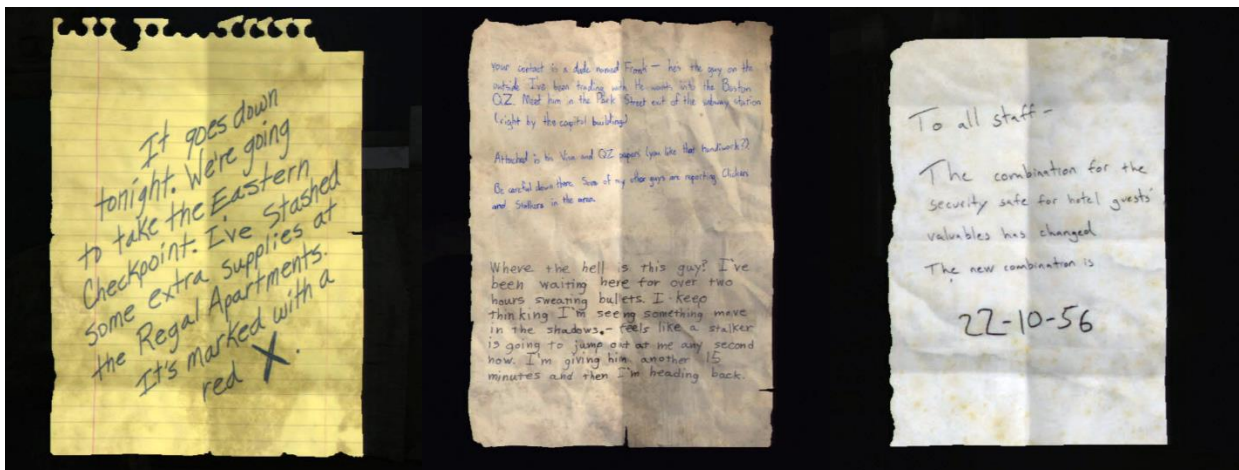 It goes down
tonight. We're going
to take the Eastern
Checkpoint. I've Stashed
some extra supplies at
the Regal Apartments.
It's marked with a
red X.
your contact is a dude named Frank — he's the guy on the
outside I've been trading with. He works with the Boston
QZ. Meet him in the Park Street exit of the subway station
(right by the capitol building)
Attached is his Visa and QZ papers (you like that handiwork?)
Be careful down there. Some of my other guys are reporting Clickers
and Stalkers in the area.
Where the hell is this guy? I've
been waiting here for over two
hours sweating bullets. I keep
thinking I'm seeing something move
in the shadows. - feels like a stalker
is going to jump out at me any second
now. I'm giving him another 15
minutes and then I'm heading back.
To all staff -
The combination for the
security safe for hotel guests'
valuables has changed
The new combination is
22-10-56